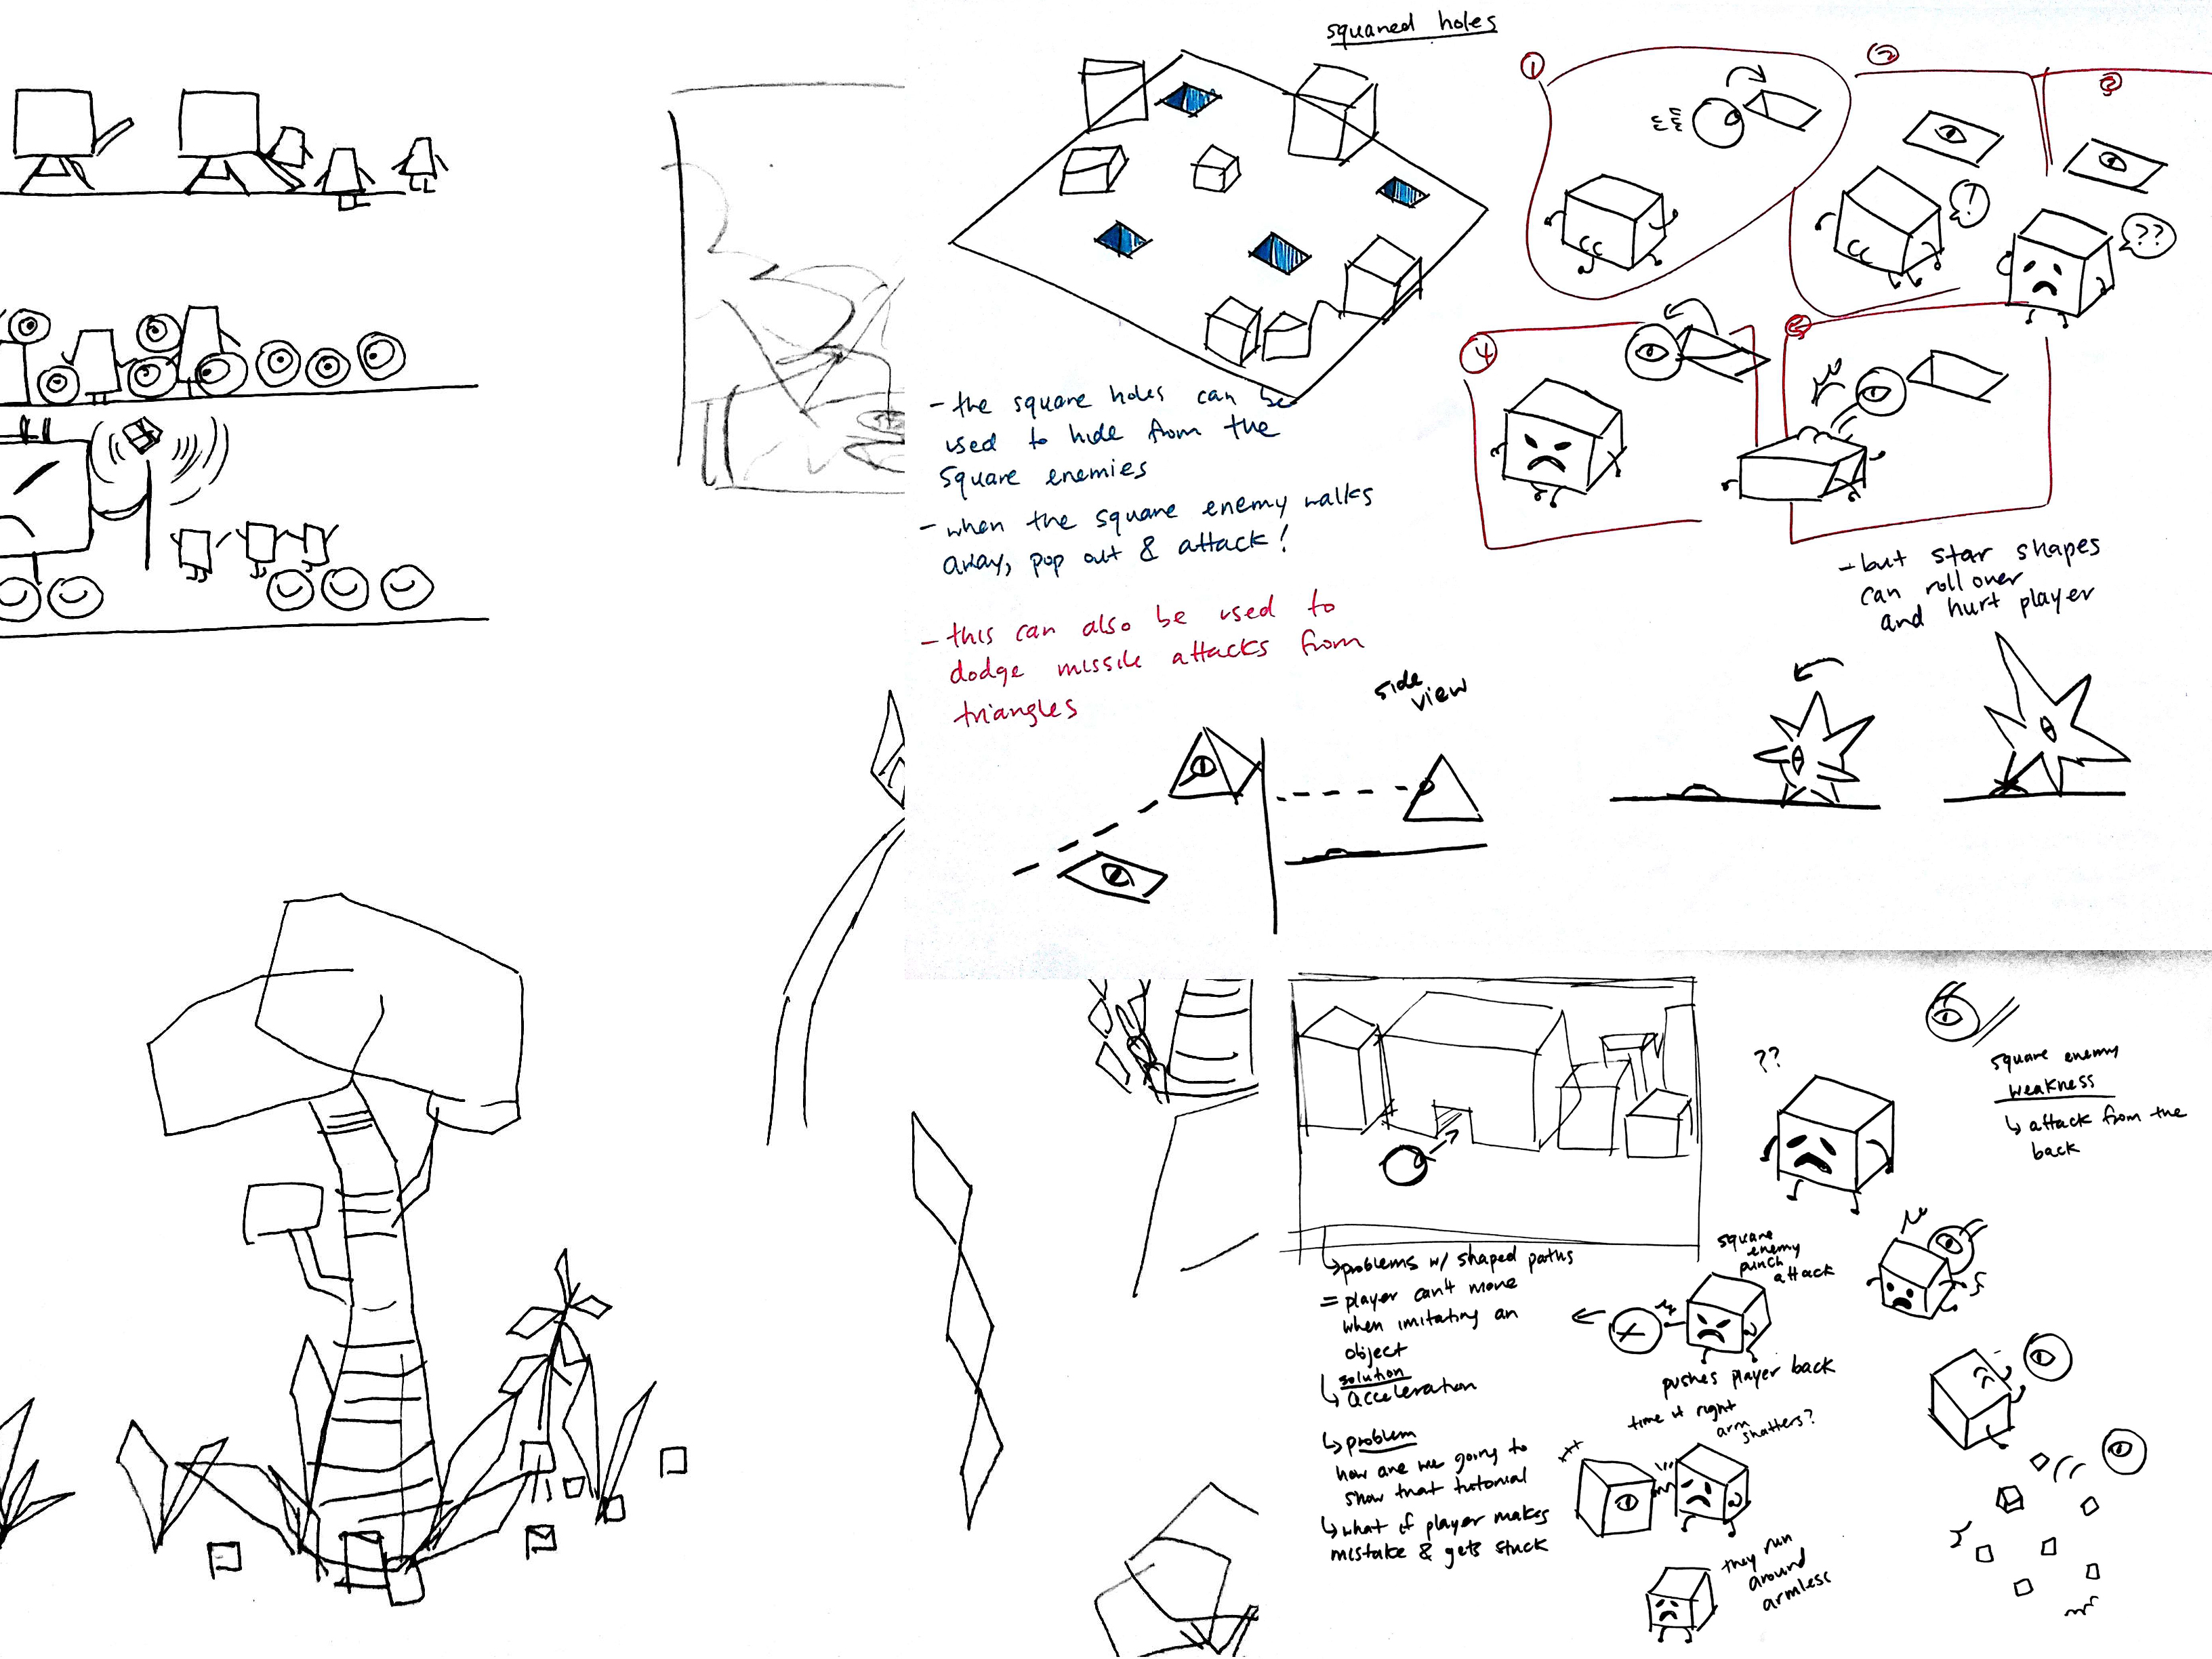 squared holes
1
2
3
!
??
4
5
- the square holes can be
used to hide from the
square enemies
- when the square enemy walks
away, pop out & attack!
- this can also be used to
dodge missile attacks from
triangles
- but star shapes
can roll over
and hurt player
side
view
??
square enemy
weakness
↳ attack from the
back
↳ problems w/ shaped paths
= player can't move
when imitating an
object
↳ solution
↳ acceleration
↳ problem
how are we going to
show that tutorial
↳ what if player makes
mistake & gets stuck
square
enemy
punch
attack
pushes player back
time it right
arm
shatters?
they run
around
armless